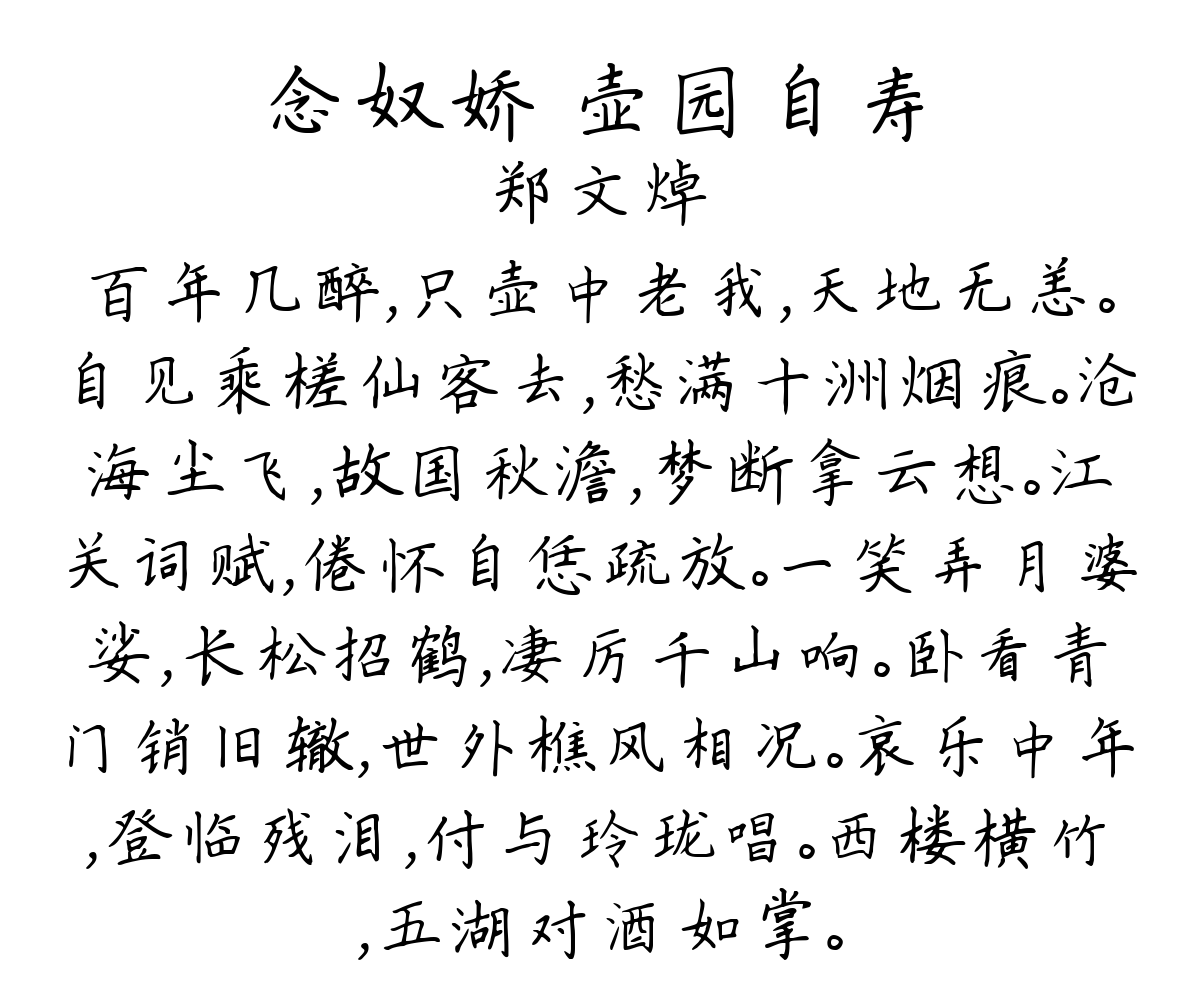 念奴娇 壶园自寿
郑文焯
百年几醉,只壶中老我,天地无恙。
自见乘槎仙客去,愁满十洲烟痕。沧
海尘飞,故国秋澹,梦断拿云想。江
关词赋,倦怀自恁疏放。一笑弄月婆
娑,长松招鹤,凄厉千山响。卧看青
门销旧辙,世外樵风相况。哀乐中年
,登临残泪,付与玲珑唱。西楼横竹
,五湖对酒如掌。